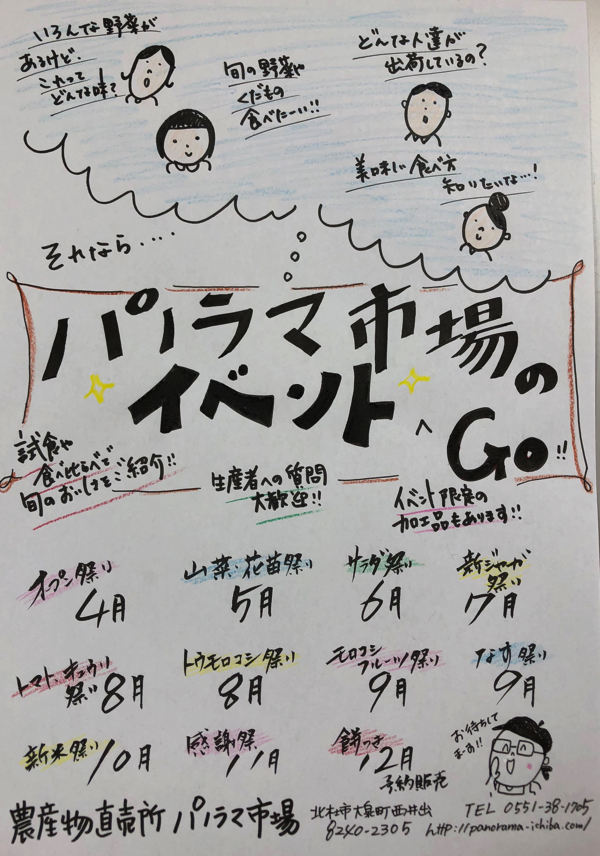 いろんな野菜が
あるけど、
これって
どんな味？
旬の野菜や
くだもの
食べたーい!!
どんな人達が
出荷しているの？
美味しい食べ方
知りたいな…！
それなら・・・・
パノラマ市場の
イベント
へ Go!!
試食や
食べ比らべで
旬のおいしさをご紹介!!
生産者への質問
大歓迎!!
イベント限定の
加工品もあります!!
オープン祭り
4月
山菜・花苗祭り
5月
サラダ祭り
6月
新ジャガ
祭り
7月
トマト・キュウリ
祭り 8月
トウモロコシ祭り
8月
モロコシ
フルーツ祭り
9月
なす祭り
9月
新米祭り 10月
感謝祭
11月
餅つき
12月
予約販売
お待ちして
まーす!!
農産物直売所 パノラマ市場
北杜市大泉町西井出
8240-2305
TEL 0551-38-1705
http://panorama-ichiba.com/